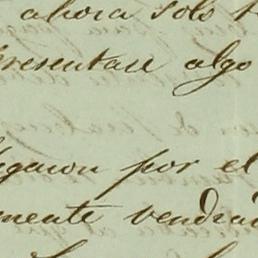 ahora solo
presentase algo
llegaron por el
mente vendra